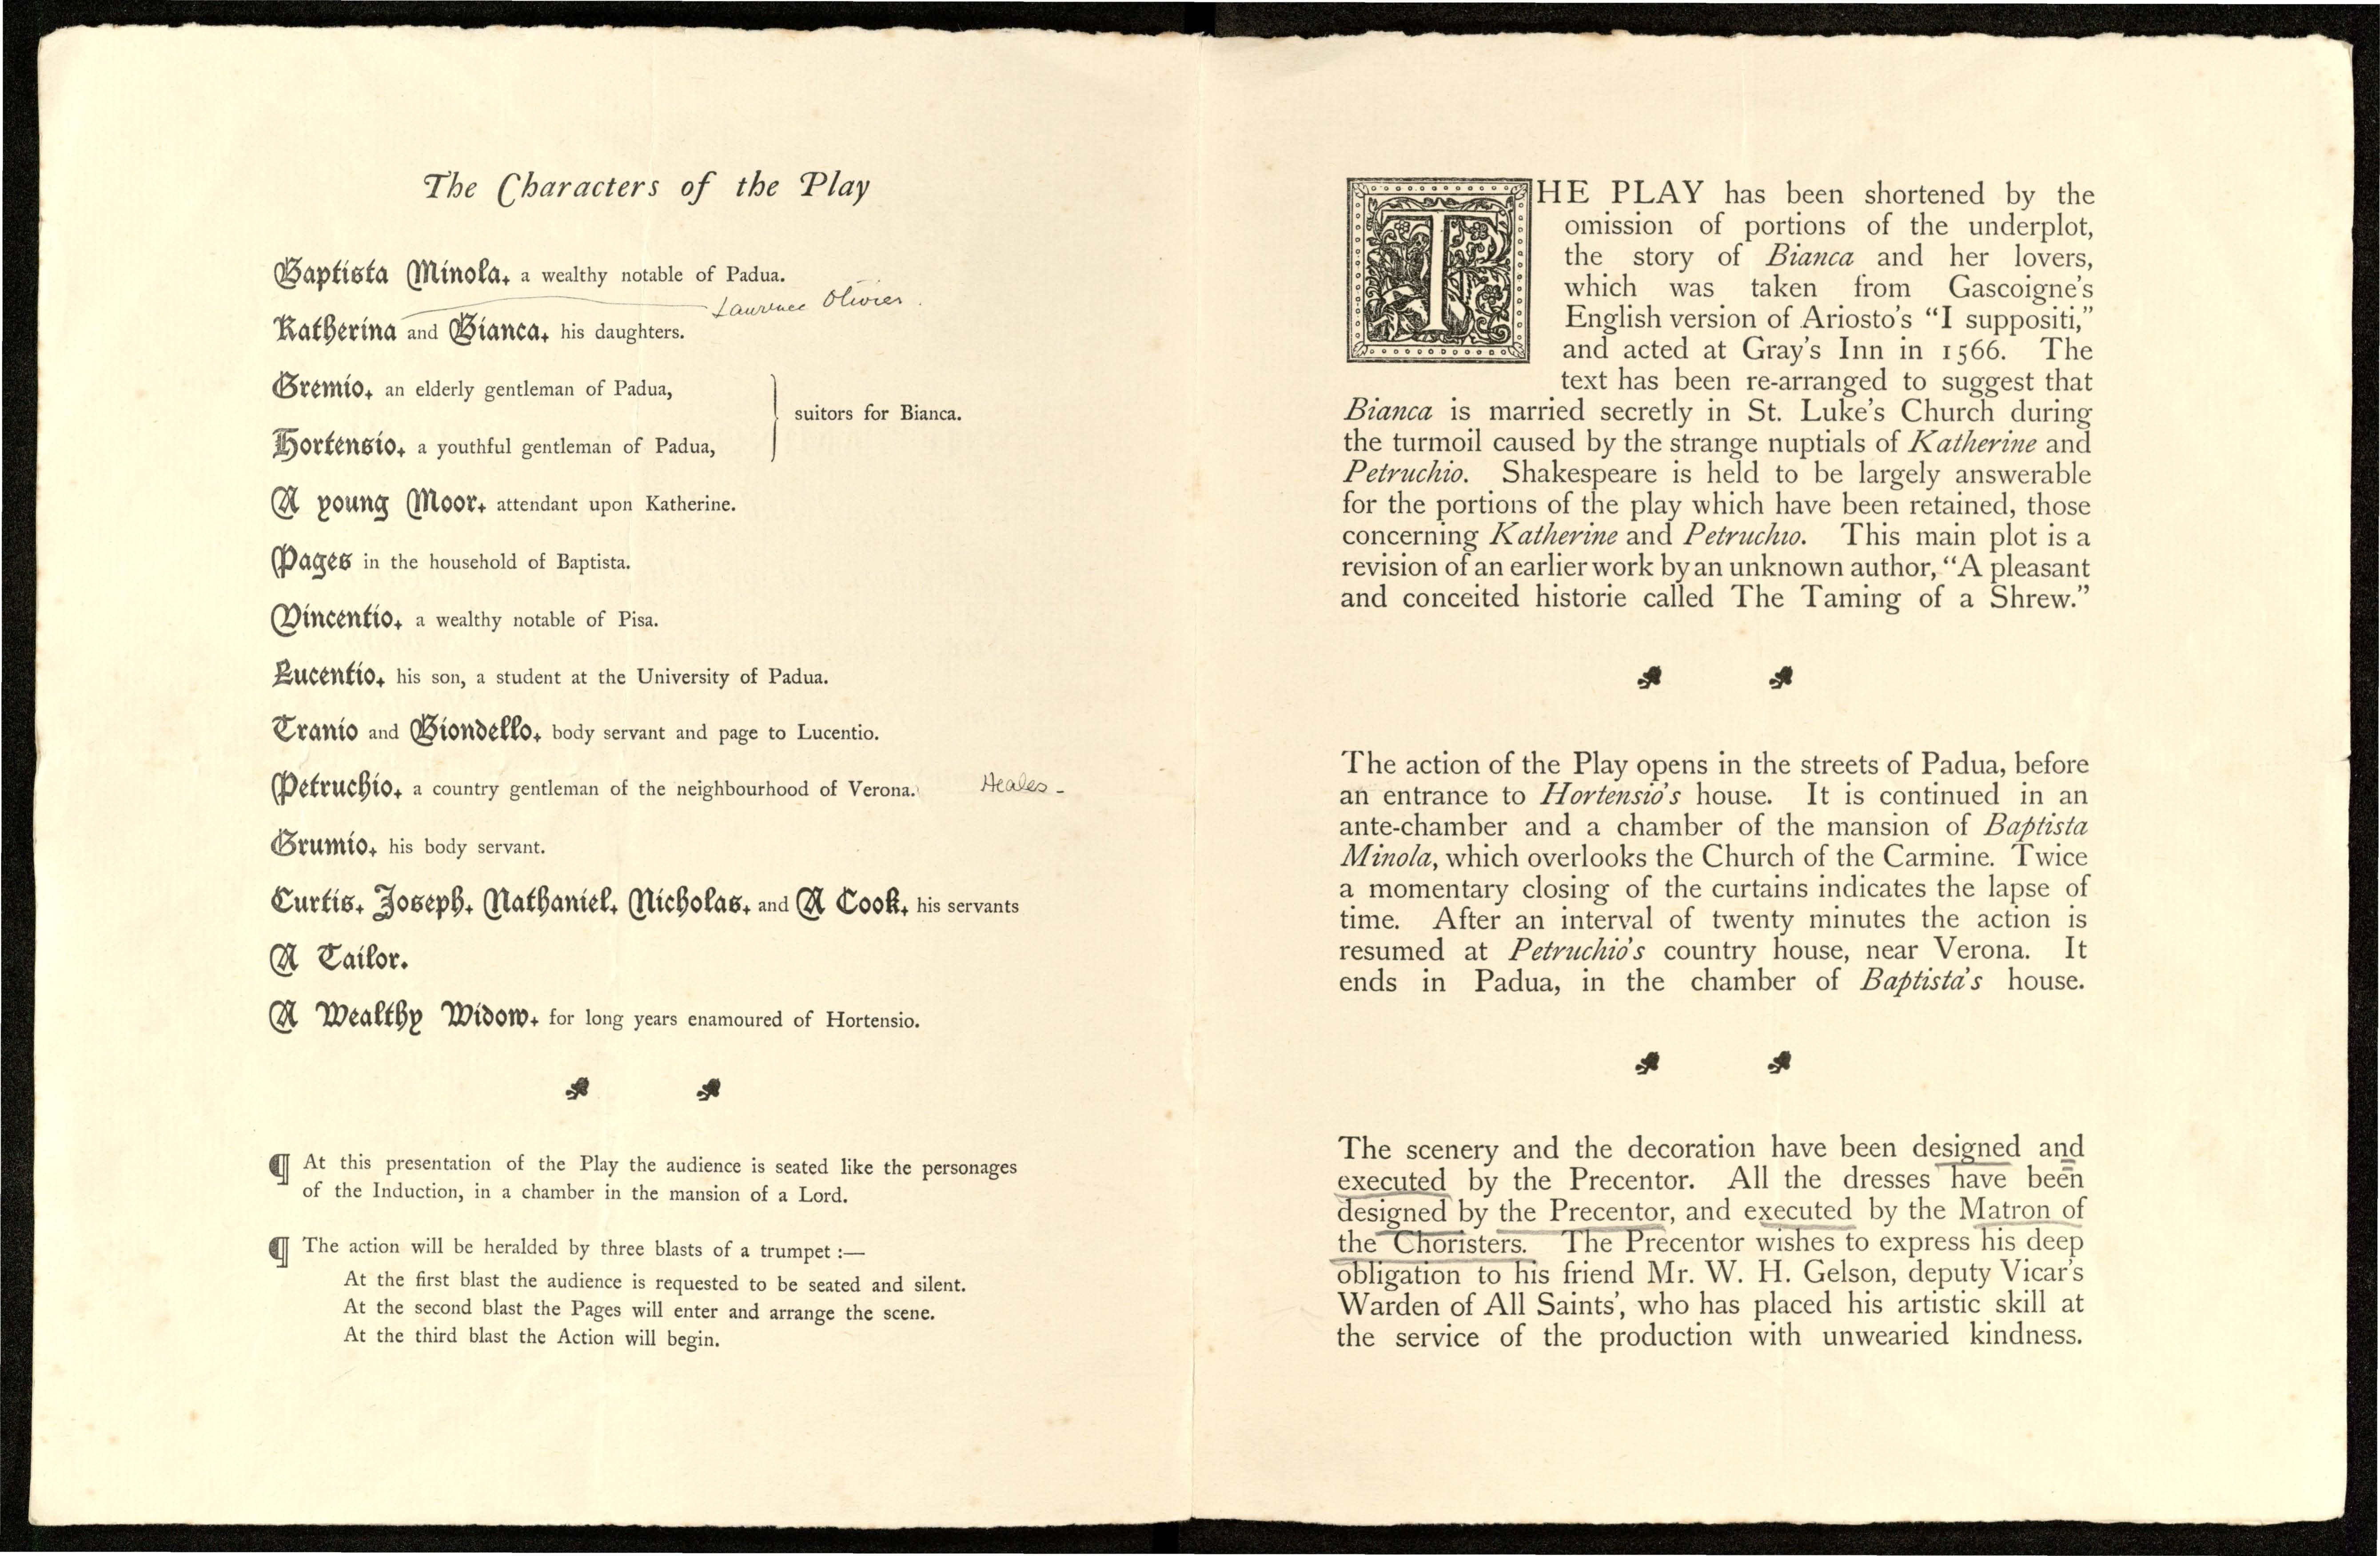 The Characters of the Play
Baptista Minola, a wealthy notable of Padua.
Laurence Olivier.
Katherina and Bianca, his daughters.
Gremio, an elderly gentleman of Padua,
suitors for Bianca.
Hortensio, a youthful gentleman of Padua,
A young Moor, attendant upon Katherine.
Pages in the household of Baptista.
Vincentio, a wealthy notable of Pisa.
Lucentio, his son, a student at the University of Padua.
Tranio and Biondello, body servant and page to Lucentio.
Petruchio, a country gentleman of the neighbourhood of Verona. Heales -
Grumio, his body servant.
Curtis, Joseph, Nathaniel, Nicholas, and A Cook, his servants
A Tailor.
A Wealthy Widow, for long years enamoured of Hortensio.
¶ At this presentation of the Play the audience is seated like the personages
of the Induction, in a chamber in the mansion of a Lord.
¶ The action will be heralded by three blasts of a trumpet :—
At the first blast the audience is requested to be seated and silent.
At the second blast the Pages will enter and arrange the scene.
At the third blast the Action will begin.
THE PLAY has been shortened by the
omission of portions of the underplot,
the story of Bianca and her lovers,
which was taken from Gascoigne's
English version of Ariosto's “I suppositi,”
and acted at Gray's Inn in 1566. The
text has been re-arranged to suggest that
Bianca is married secretly in St. Luke's Church during
the turmoil caused by the strange nuptials of Katherine and
Petruchio. Shakespeare is held to be largely answerable
for the portions of the play which have been retained, those
concerning Katherine and Petruchio. This main plot is a
revision of an earlier work by an unknown author, “A pleasant
and conceited historie called The Taming of a Shrew.”
The action of the Play opens in the streets of Padua, before
an entrance to Hortensio's house. It is continued in an
ante-chamber and a chamber of the mansion of Baptista
Minola, which overlooks the Church of the Carmine. Twice
a momentary closing of the curtains indicates the lapse of
time. After an interval of twenty minutes the action is
resumed at Petruchio's country house, near Verona. It
ends in Padua, in the chamber of Baptista's house.
The scenery and the decoration have been designed and
executed by the Precentor. All the dresses have been
designed by the Precentor, and executed by the Matron of
the Choristers. The Precentor wishes to express his deep
obligation to his friend Mr. W. H. Gelson, deputy Vicar's
Warden of All Saints', who has placed his artistic skill at
the service of the production with unwearied kindness.